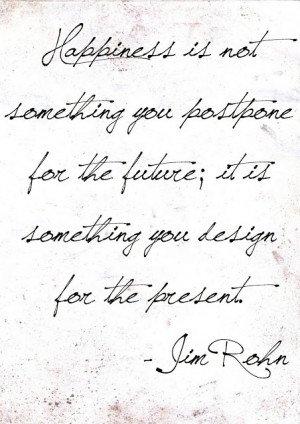 Happiness is not
something you postpone
for the future; it is
something you design
for the present.
- Jim Rohn